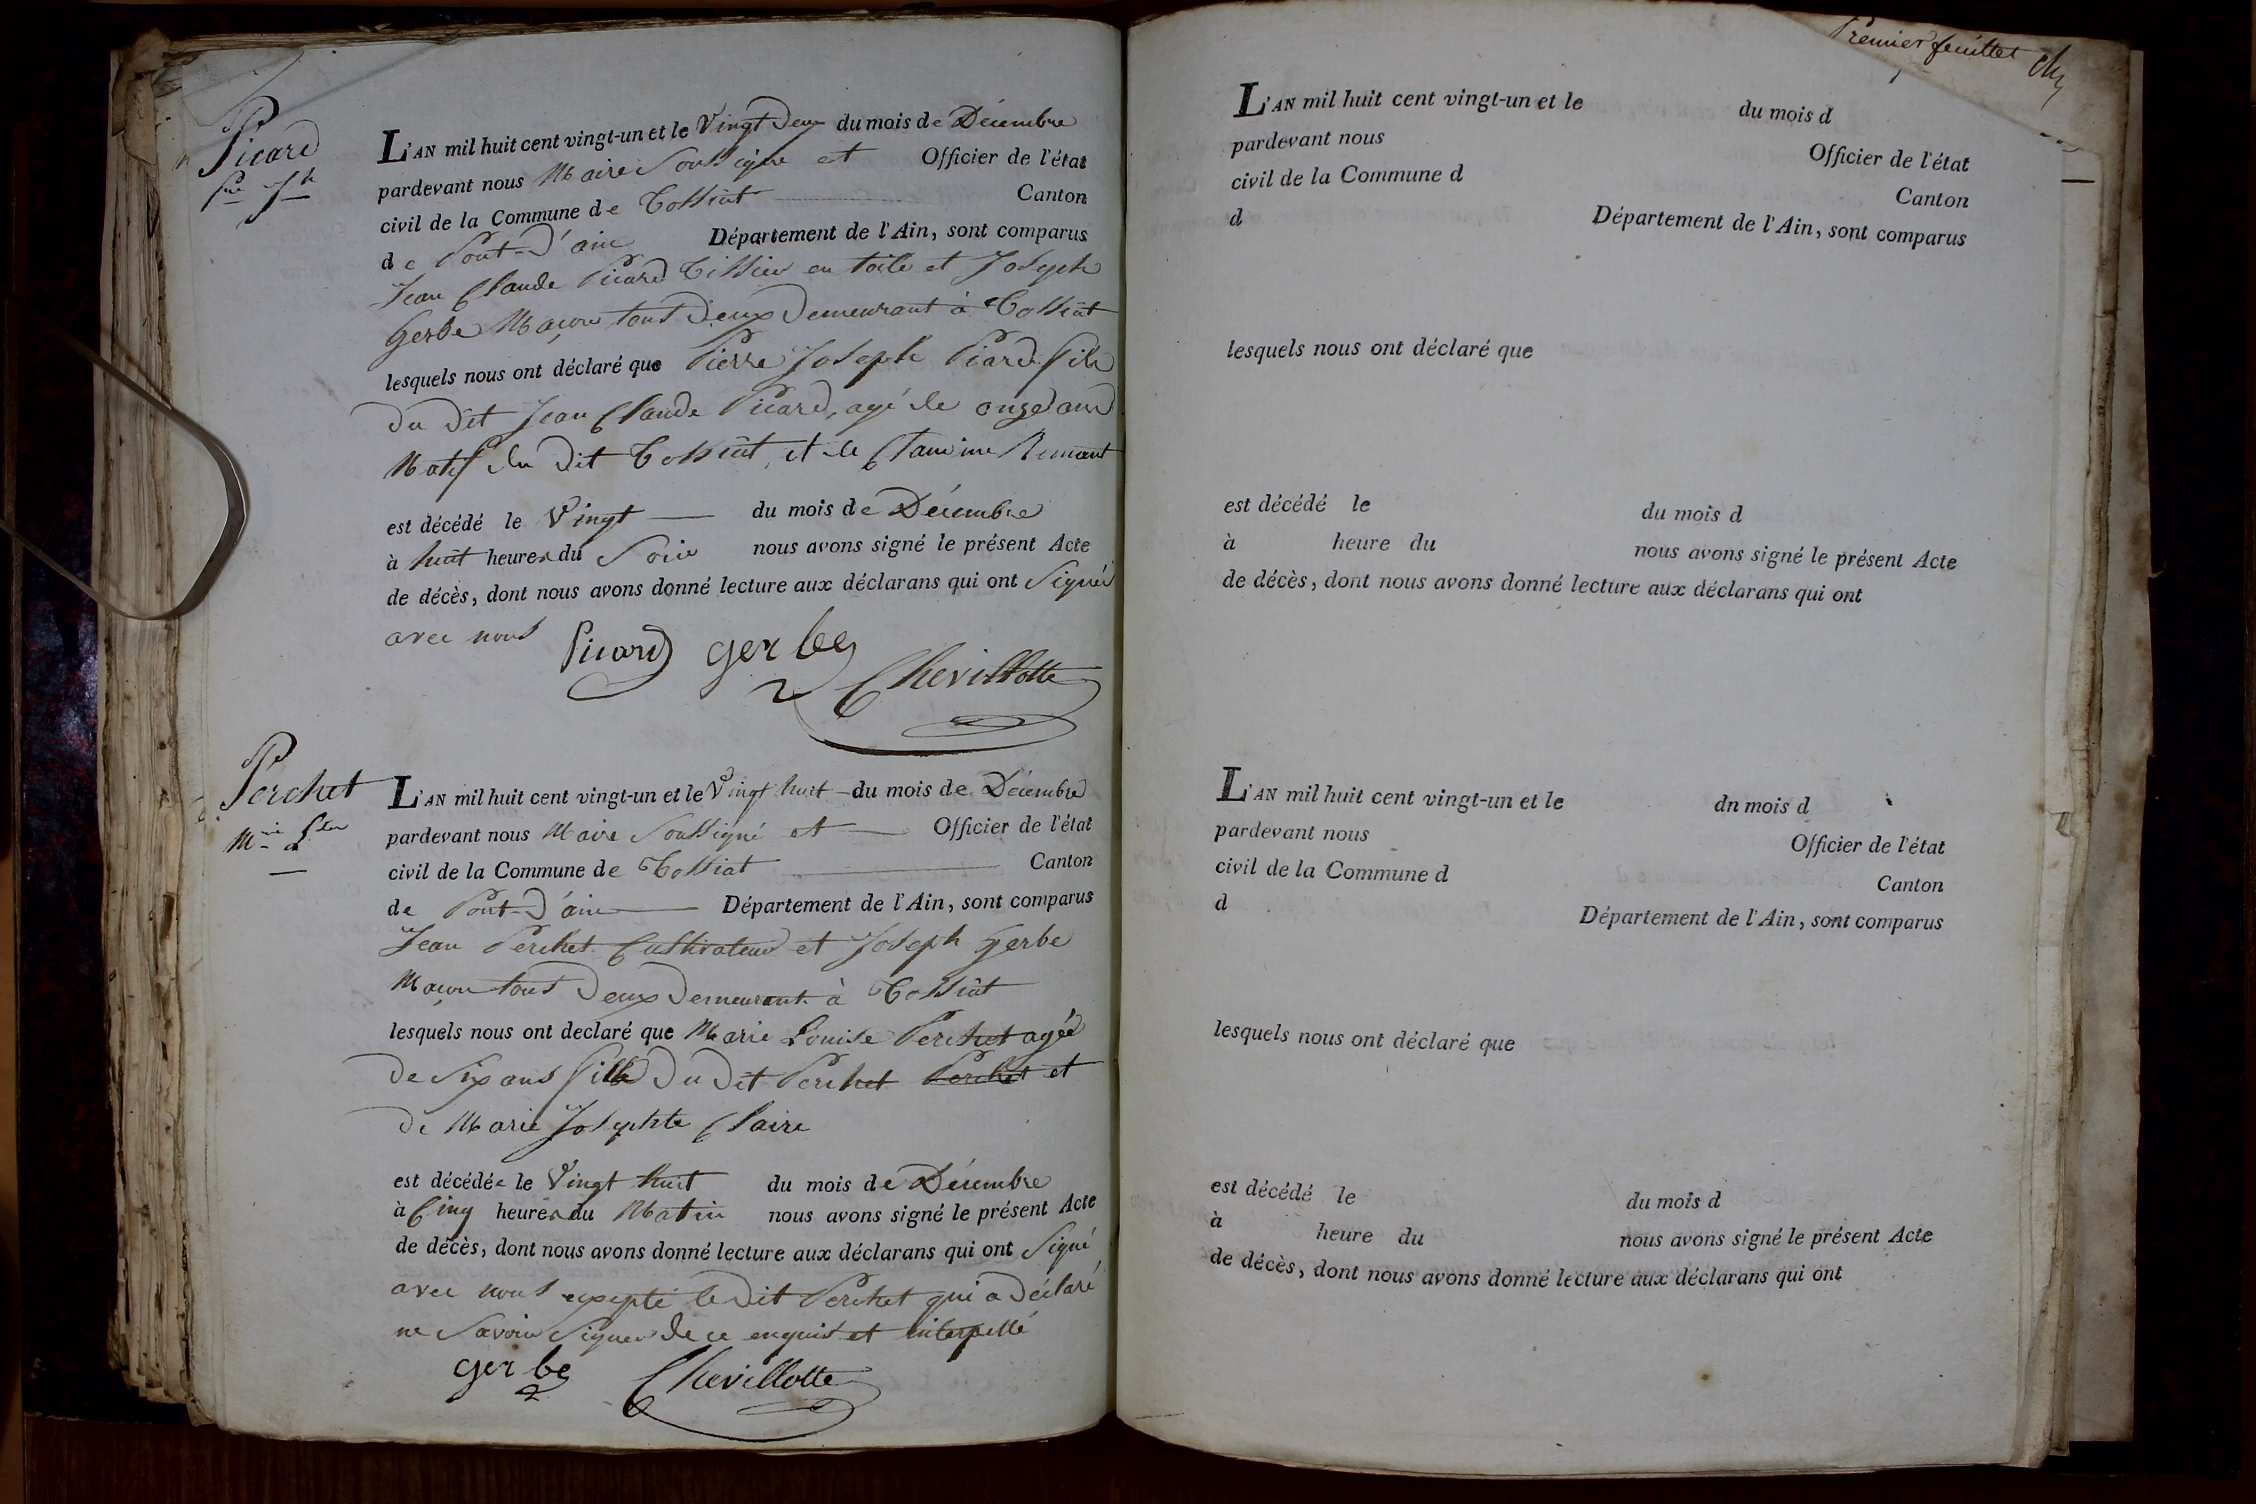 Picard
Pre Jh
L'AN mil huit cent vingt-un et le Vingt Deux du mois de Décembre
pardevant nous Maire Soussigné et Officier de l'état
civil de la Commune de Tossiat Canton
de Pont-D'ain Département de l'Ain, sont comparus
Jean Claude Picard Tissier en toile et Joseph
Gerbe Maçon tous Deux Demeurant à Tossiat
lesquels nous ont déclaré que Pierre Joseph Picard fils
Du Dit Jean Claude Picard, agé de onze ans
Natif du Dit Tossiat, et de Claudine
est décédé le Vingt du mois de Décembre
à huit heures du Soir nous avons signé le présent Acte
de décès, dont nous avons donné lecture aux déclarans qui ont Signé
avec nous
Picard Gerbe
Chevillotte
Perchet
Mie
L'AN mil huit cent vingt-un et le Vingt huit du mois de Décembre
pardevant nous Maire Soussigné et Officier de l'état
civil de la Commune de Tossiat Canton
de Pont-D'ain Département de l'Ain, sont comparus
Jean Perchet Cultivateur et Joseph Gerbe
Maçon tous Deux Demeurant à Tossiat
lesquels nous ont declaré que Marie Louise Perchet agée
De Six ans fille Du Dit Perchet Perchet et
De Marie Josephte Claire
est décédée le Vingt huit du mois de Décembre
à Cinq heures du Matin nous avons signé le présent Acte
de décès, dont nous avons donné lecture aux déclarans qui ont Signé
avec nous excepté le Dit Perchet qui a Déclaré
ne Savoir Signer de ce enquis et interpellé
Gerbe Chevillotte
Premier feuillet
L'AN mil huit cent vingt-un et le du mois d
pardevant nous Officier de l'état
civil de la Commune d Canton
d Département de l'Ain, sont comparus
lesquels nous ont déclaré que
est décédé le du mois d
à heure du nous avons signé le présent Acte
de décès, dont nous avons donné lecture aux déclarans qui ont
L'AN mil huit cent vingt-un et le dn mois d
pardevant nous Officier de l'état
civil de la Commune d Canton
d Département de l'Ain, sont comparus
lesquels nous ont déclaré que
est décédé le du mois d
à heure du nous avons signé le présent Acte
de décès, dont nous avons donné lecture aux déclarans qui ont